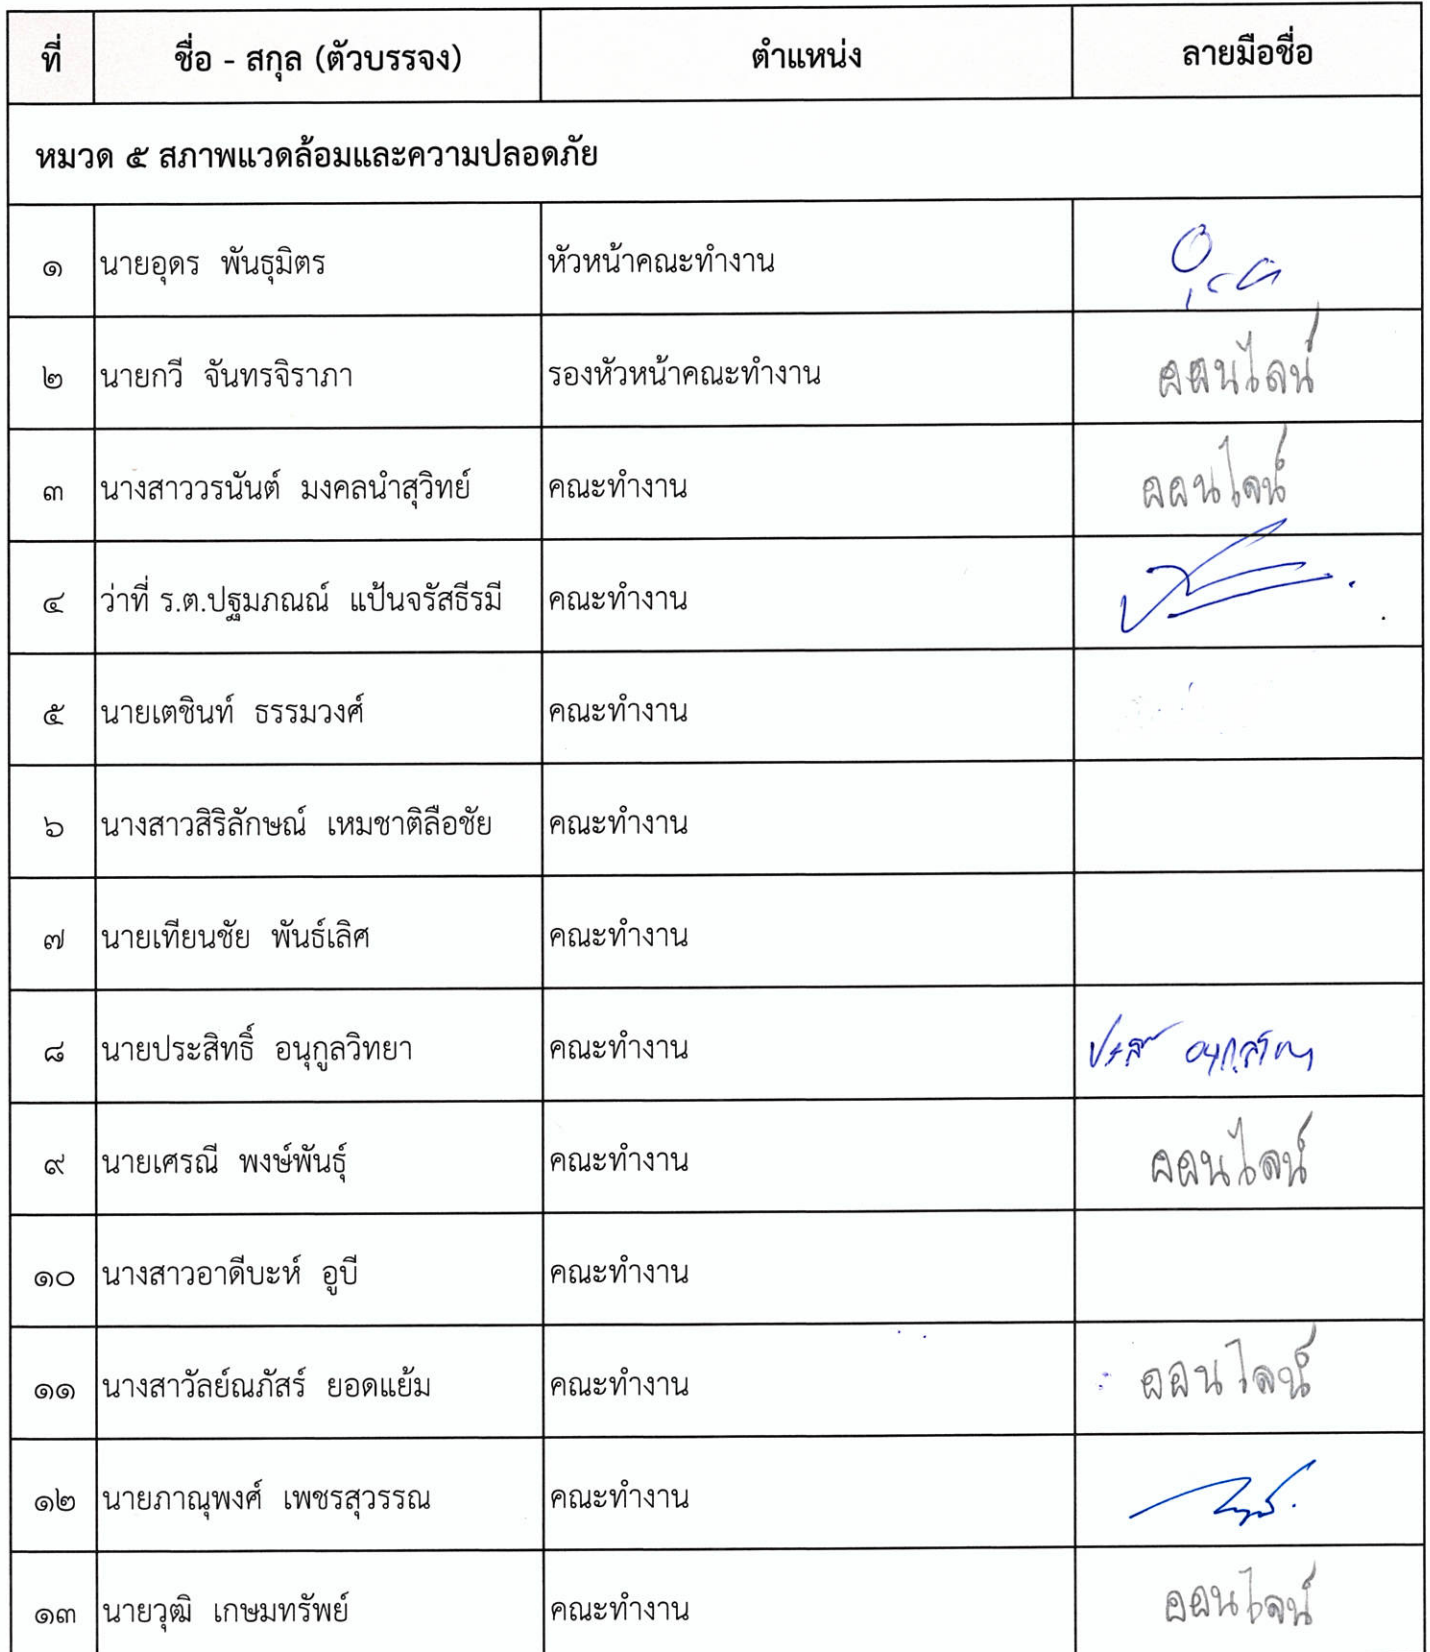 ที่ ชื่อ - สกุล (ตัวบรรจง) ตำแหน่ง ลายมือชื่อ
หมวด ๕ สภาพแวดล้อมและความปลอดภัย
๑ นายอุดร พันธุมิตร หัวหน้าคณะทำงาน
๒ นายกวี จันทรจิราภา รองหัวหน้าคณะทำงาน ออนไลน์
๓ นางสาววรนันต์ มงคลนำสุวิทย์ คณะทำงาน ออนไลน์
๔ ว่าที่ ร.ต.ปฐมภณณ์ แป้นจรัสธีรมี คณะทำงาน
๕ นายเตชินท์ ธรรมวงศ์ คณะทำงาน
๖ นางสาวสิริลักษณ์ เหมชาติลือชัย คณะทำงาน
๗ นายเทียนชัย พันธ์เลิศ คณะทำงาน
๘ นายประสิทธิ์ อนุกูลวิทยา คณะทำงาน
๙ นายเศรณี พงษ์พันธุ์ คณะทำงาน ออนไลน์
๑๐ นางสาวอาดีบะห์ อูบี คณะทำงาน
๑๑ นางสาวัลย์ณภัสร์ ยอดแย้ม คณะทำงาน ออนไลน์
๑๒ นายภาณุพงศ์ เพชรสุวรรณ คณะทำงาน
๑๓ นายวุฒิ เกษมทรัพย์ คณะทำงาน ออนไลน์